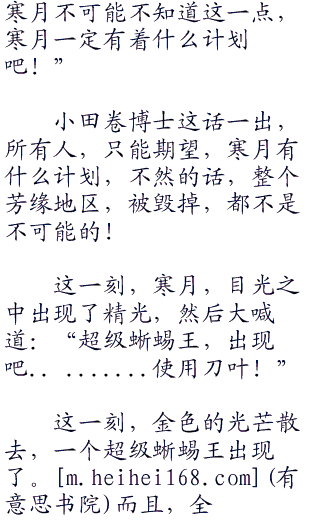 寒月不可能不知道这一点，
寒月一定有着什么计划
吧！”
小田卷博士这话一出，
所有人，只能期望，寒月有
什么计划，不然的话，整个
芳缘地区，被毁掉，都不是
不可能的！
这一刻，寒月，目光之
中出现了精光，然后大喊
道：“超级蜥蜴王，出现
吧.. .......使用刀叶！”
这一刻，金色的光芒散
去，一个超级蜥蜴王出现
了。[m.heihei168.com](有
意思书院)而且，全